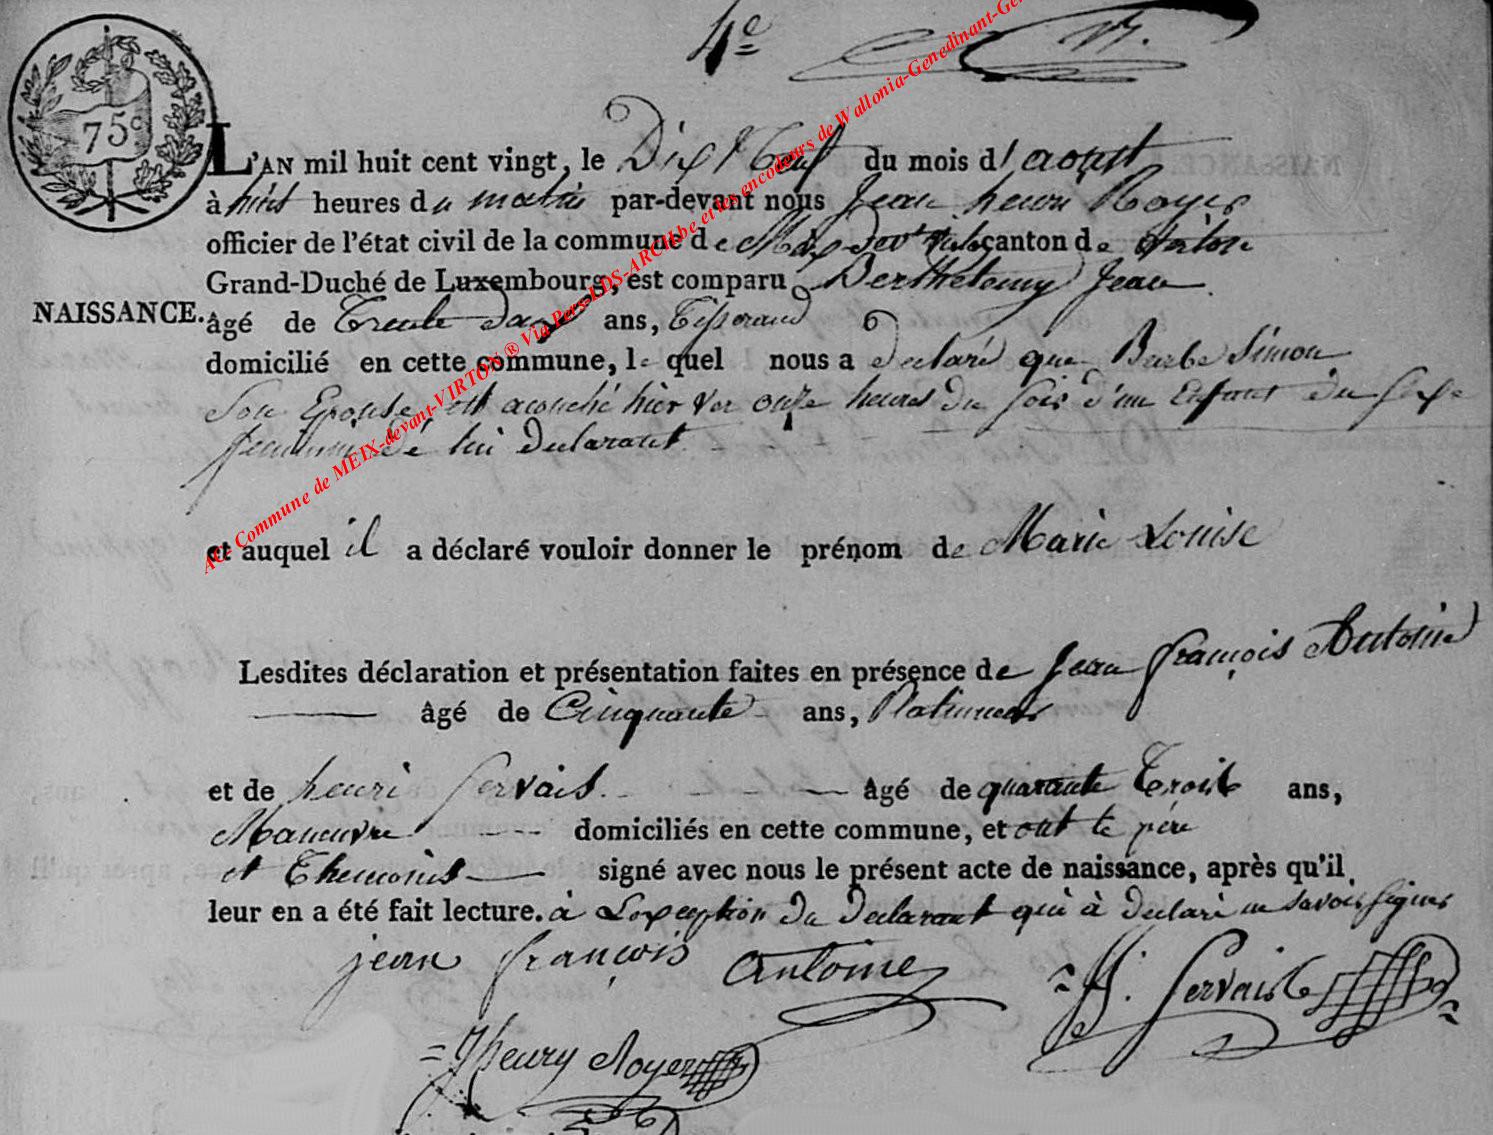 4e
75c
L'AN mil huit cent vingt, le Dix Neuf du mois d'aoust
à huit heures du matin par-devant nous Jean henri Noyer
officier de l'état civil de la commune de Meix devt Virton canton de
Grand-Duché de Luxembourg, est comparu Berthelemy Jean
NAISSANCE.
âgé de Trente ans, Tisserand
domicilié en cette commune, le quel nous a declaré que Barbe Simon
Son Epouse est acouché hier ver onze heures du soir d'un Enfant du sexe
feminin dé lui declarant
et auquel il a déclaré vouloir donner le prénom de Marie Louise
Lesdites déclaration et présentation faites en présence de Jean françois Antoine
âgé de Cinquante ans, Platineur
et de henri Gervais âgé de quarante Trois ans,
Maneuvre domiciliés en cette commune, et ont le père
et Themoins signé avec nous le présent acte de naissance, après qu'il
leur en a été fait lecture. à Lexception du declarant qui à declaré ne savoir signer
jean françois antoine H. Gervais
J henry Noyer
AC- Commune de MEIX-devant-VIRTON ® Via Pers-LDS-ARCH.be et les encodeurs de Wallonia-Genedinant-Gen